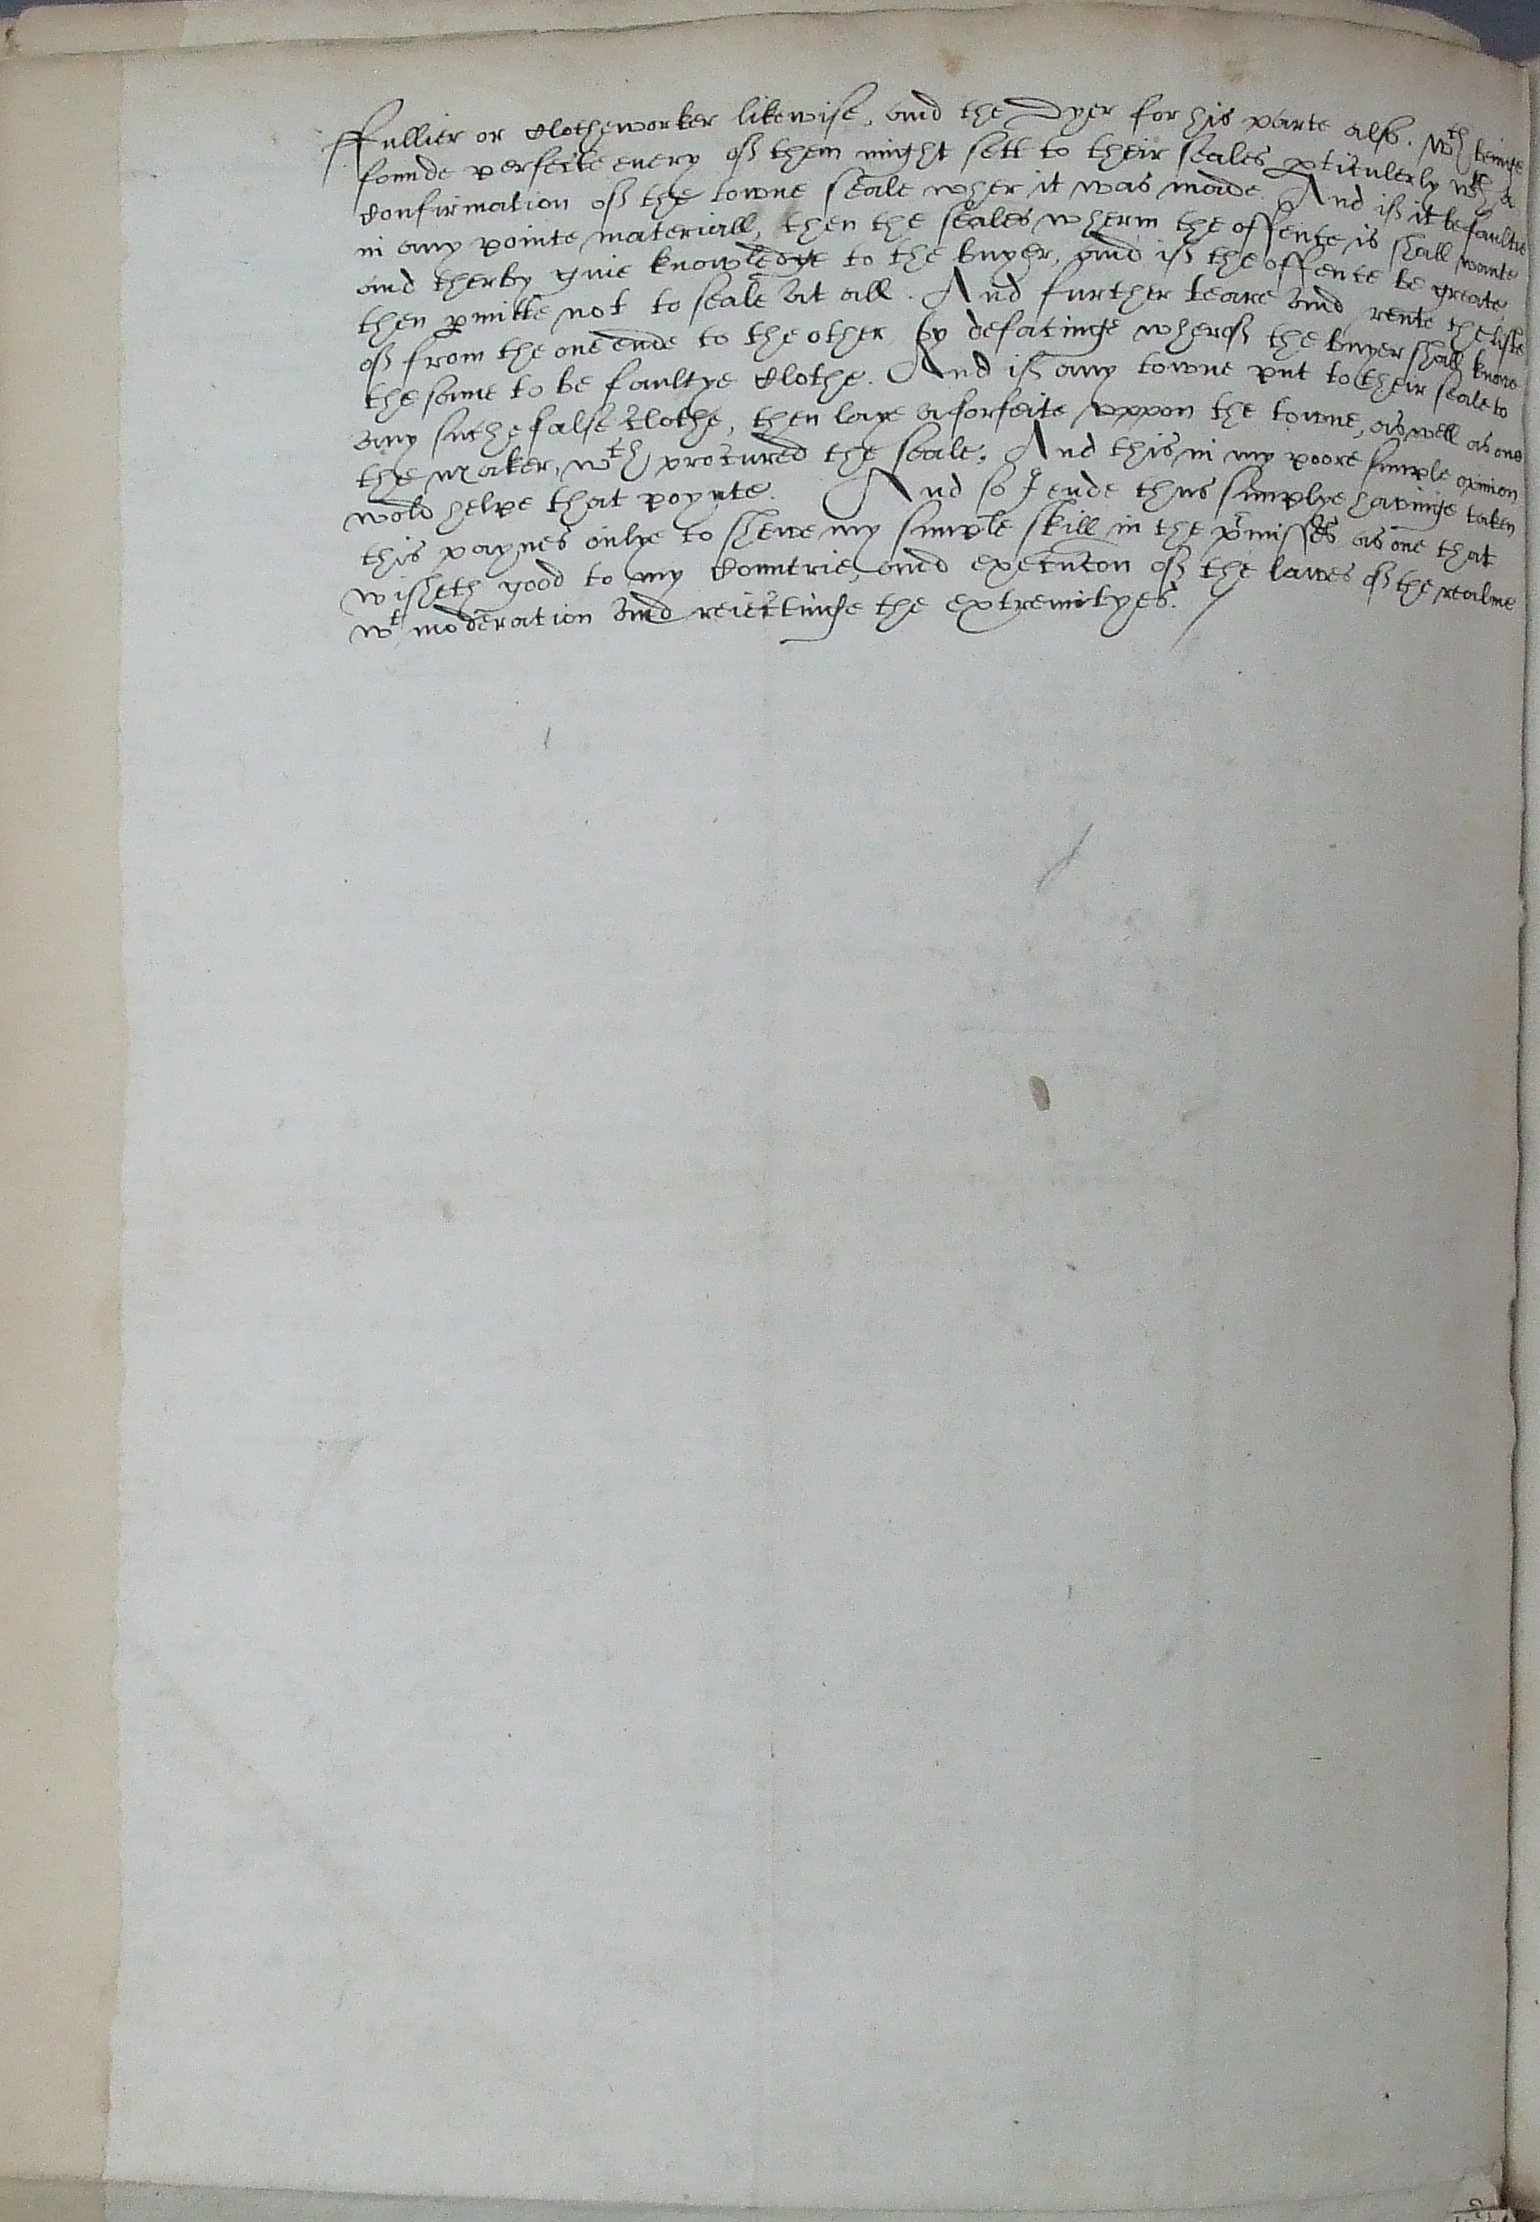 ffullier or Clotheworker likewise, and the Dyer for his parte also. wth beinge
founde perfecte euery of them might sett to their seales pticulerly wth a
Confirmation of the towne seale wher it was made. And if it be faultie
in any pointe materiall, then the seales wherin the offence is shall wante
and therby giue knowledge to the buyer, and if the offence be greate,
then pmitte not to seale at all. And further teare and rente the liste
of from the one ende to the other by defacinge wherof the buyer shall know
the same to be faultye Clothe. And if any towne put to their seale to
any suche false Clothe, then laye a forfeite vppon the towne, as well as one
the maker, wth procured the seale; And this in my poore simple opinion
wold helpe that poynte. And so I ende thus simplye havinge taken
this paynes onlye to shewe my simple skill in the pmisses as one that
wisheth good to my Countrie, and execucon of the lawes of the realme
wt moderation and reiectinge the extremityes. /